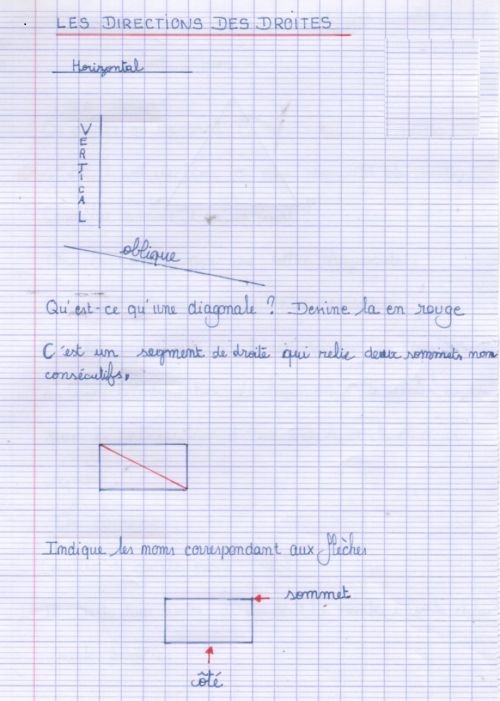 LES DIRECTIONS DES DROITES
Horizontal
VERTICAL
oblique
Qu'est-ce qu'une diagonale ? Dessine la en rouge
C'est un segment de droite qui relie deux sommets non
consécutifs.
Indique les noms correspondant aux flèches
sommet
côté